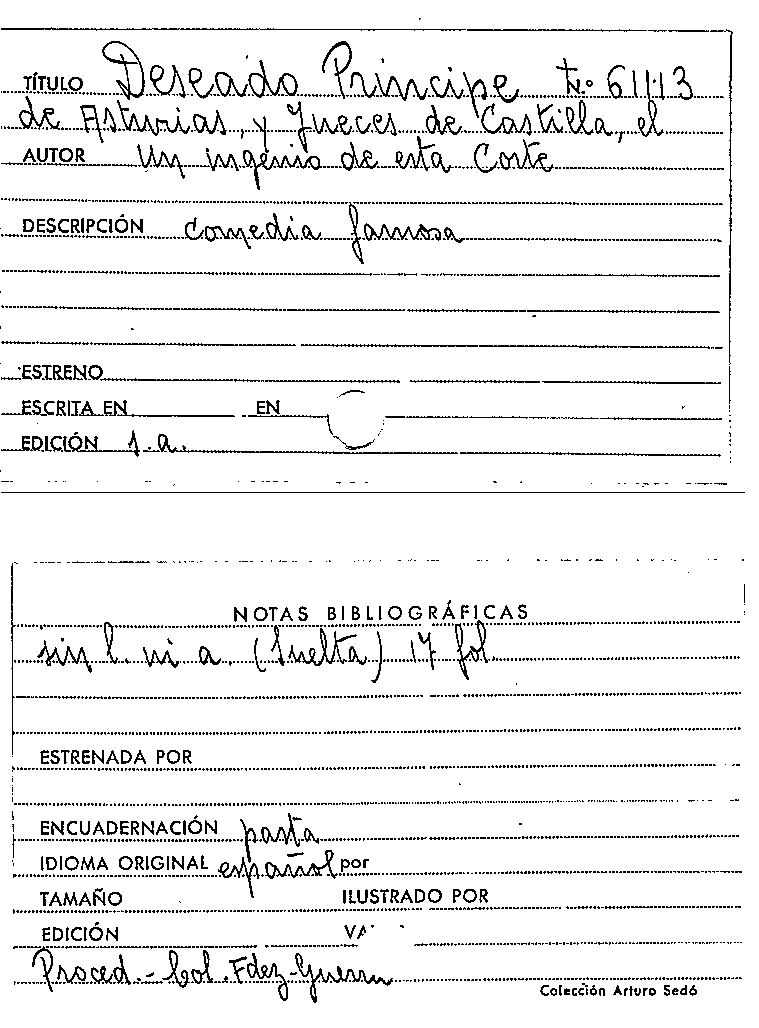 TÍTULO Deseado Principe N.º 61113
de Asturias, y Jueces de Castilla, el
AUTOR Un ingenio de esta Corte
DESCRIPCIÓN Comedia famosa
ESTRENO
ESCRITA EN EN
EDICIÓN s.a.
NOTAS BIBLIOGRÁFICAS
sin l. ni a. (Suelta) 17 fol.
ESTRENADA POR
ENCUADERNACIÓN pasta
IDIOMA ORIGINAL español por
TAMAÑO ILUSTRADO POR
EDICIÓN
Proced.- Col. Fdez-Guerra
Colección Arturo Sedó